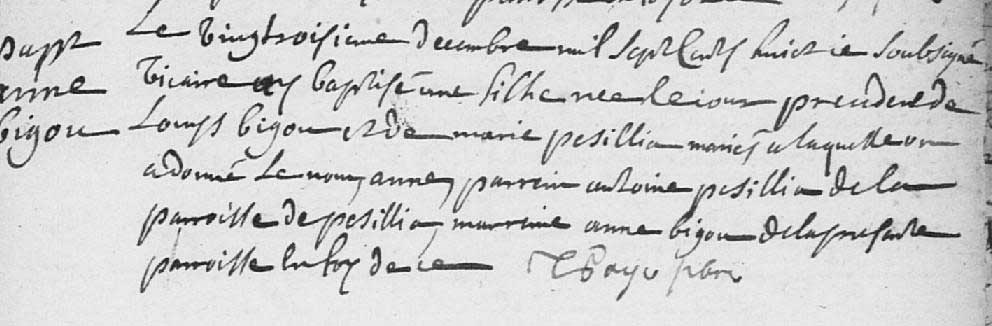 Bapt
anne
bigou
Le vingtroisieme decembre mil sept cents huict je soubsigné
vicaire ay baptisé une filhe nee le jour precedent de
Louys bigou et de marie pesillia mariés a laquelle on
a donné le nom, anne, parrein antoine pesillia de la
parroisse de pesillia, marreine anne bigou de la presente
parroisse en foy de ce